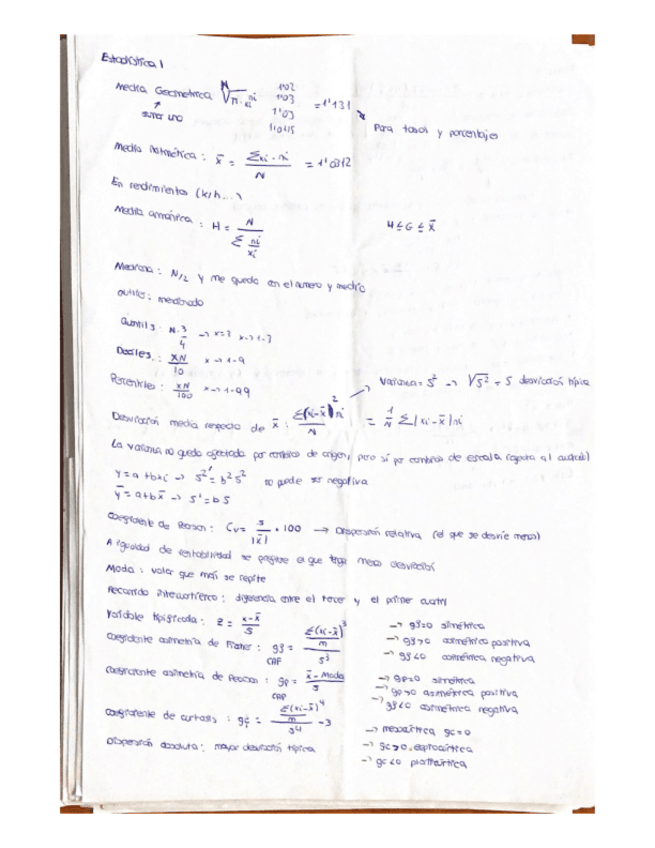 Estadística 1
Media Geométrica N√π xi^ni 1'02 1'03 1'03 1'0415 = 1'131 → Para tasas y porcentajes
sumar uno
Media Aritmética: x̄ = Σxi·ni / N = 1'0312
En rendimientos (k/h...)
Media armónica: H = N / Σ ni/xi
H ≤ G ≤ x̄
Mediana: N/2 y me quedo con el numero y medio
Cuartil 3: N·3/4 → x=3 x→1-3
Deciles: xN/10 x→1-9
Percentiles: xN/100 x→1-99
Varianza = S² → √S² = S desviación típica
Desviación media respecto de x̄: Σ(xi-x̄)²ni / N = 1/N Σ|xi-x̄|ni
La varianza no queda afectada por cambios de origen, pero sí por cambios de escala (afecta al cuadrado)
y = a + bxi → S²' = b²S² no puede ser negativa
ȳ = a + bx̄ → S' = bS
Coeficiente de Pearson: Cv = S/|x̄| · 100 → Dispersión relativa (el que se desvíe menos)
A igualdad de rentabilidad se prefiere el que tenga menos desviación
Moda: valor que más se repite
Recorrido intercuartílico: diferencia entre el tercer y el primer cuartil
Variable tipificada: z = x-x̄ / S
Coeficiente asimetría de Fisher: gf = Σ(xi-x̄)³/n / S³
CAF
→ gf=0 simétrica
→ gf>0 asimétrica positiva
→ gf<0 asimétrica negativa
Coeficiente asimetría de Pearson: gp = x̄ - Moda / S
CAP
→ gp=0 simétrica
→ gp>0 asimétrica positiva
→ gf<0 asimétrica negativa
Coeficiente de curtosis: gc = Σ(xi-x̄)⁴/n / S⁴ - 3
→ mesocúrtica gc=0
→ gc>0 leptocúrtica
→ gc<0 platicúrtica
Dispersión absoluta: mayor desviación típica